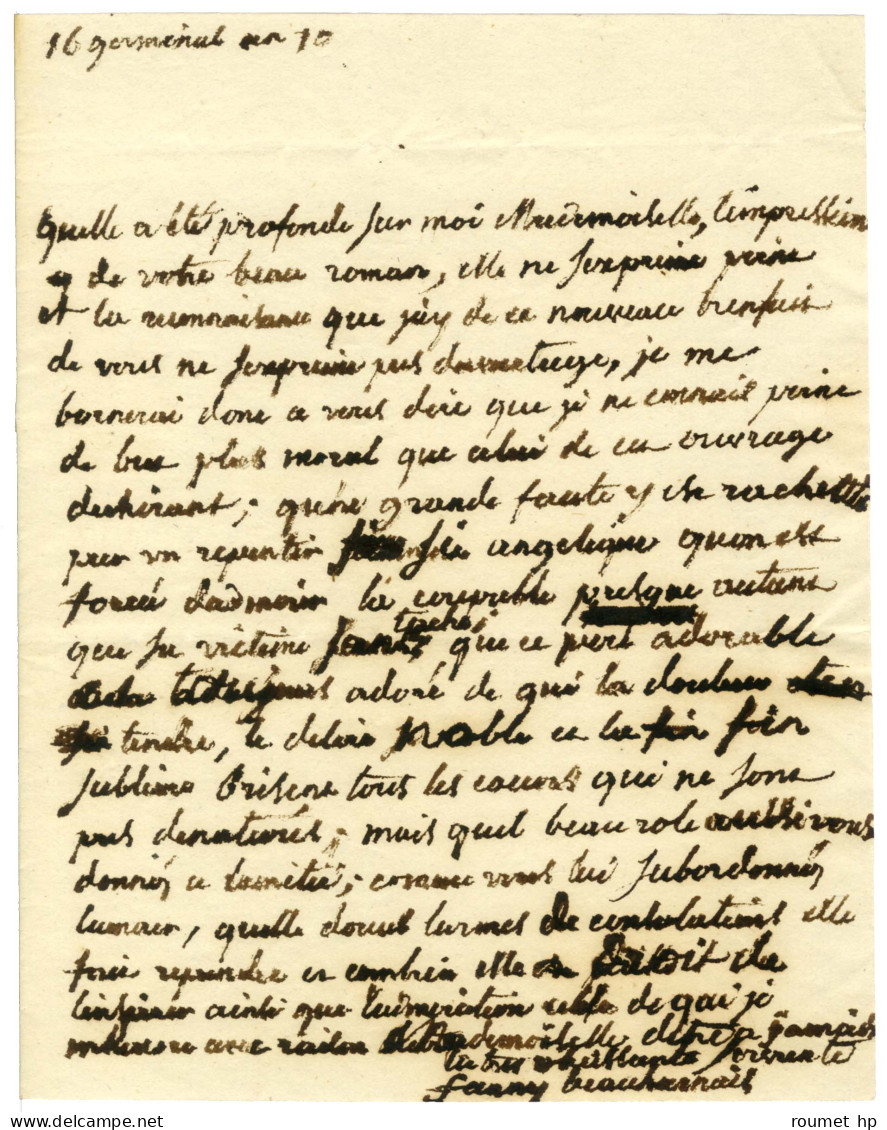 16 germinal an 10
quelle a été profonde sur moi Mademoiselle, l'impression
de votre beau roman, elle ne s'exprime point
et la reconnaissance que j'ay de ce nouveau bienfait
de vous ne s'exprime pas davantage, je me
bornerai donc a vous dire que je ne connais point
de but plus moral que celui de cet ouvrage
dechirant; qu'une grande faute y est rachettée
par un repentir si angelique quon est
forcé dadmirer la coupable presque autant
que sa victime sans taches; que ce pere adorable
toujours adoré de qui la douleur
tendre, le delire noble et la fin
sublime brisent tous les coeurs qui ne sont
pas denaturés; mais quel beau role aussi vous
donnés a lamitié; comme vous lui subordonnés
lamour, quelle douces larmes de consolations elle
fait repandre et combien elle doit
linspirer ainsi que ladmiration celle de qui je
mhonore avec raison Mademoiselle detre a jamais
la tres obeissante servente
fanny beauharnais
roumet hp
DELCAMPE.NET